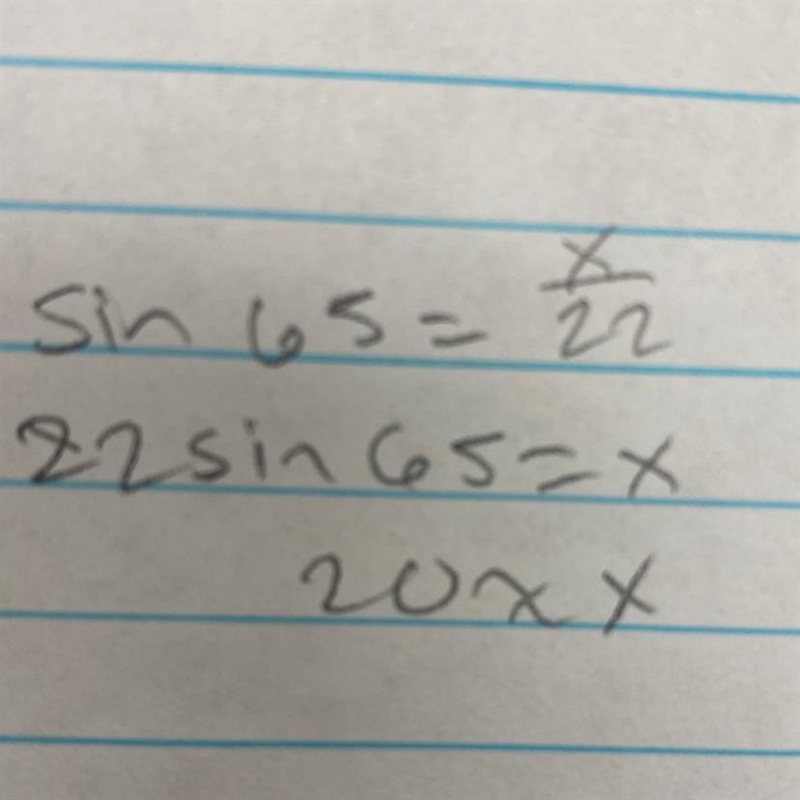 sin 65 = x/22
22 sin 65 = x
20 ≈ x